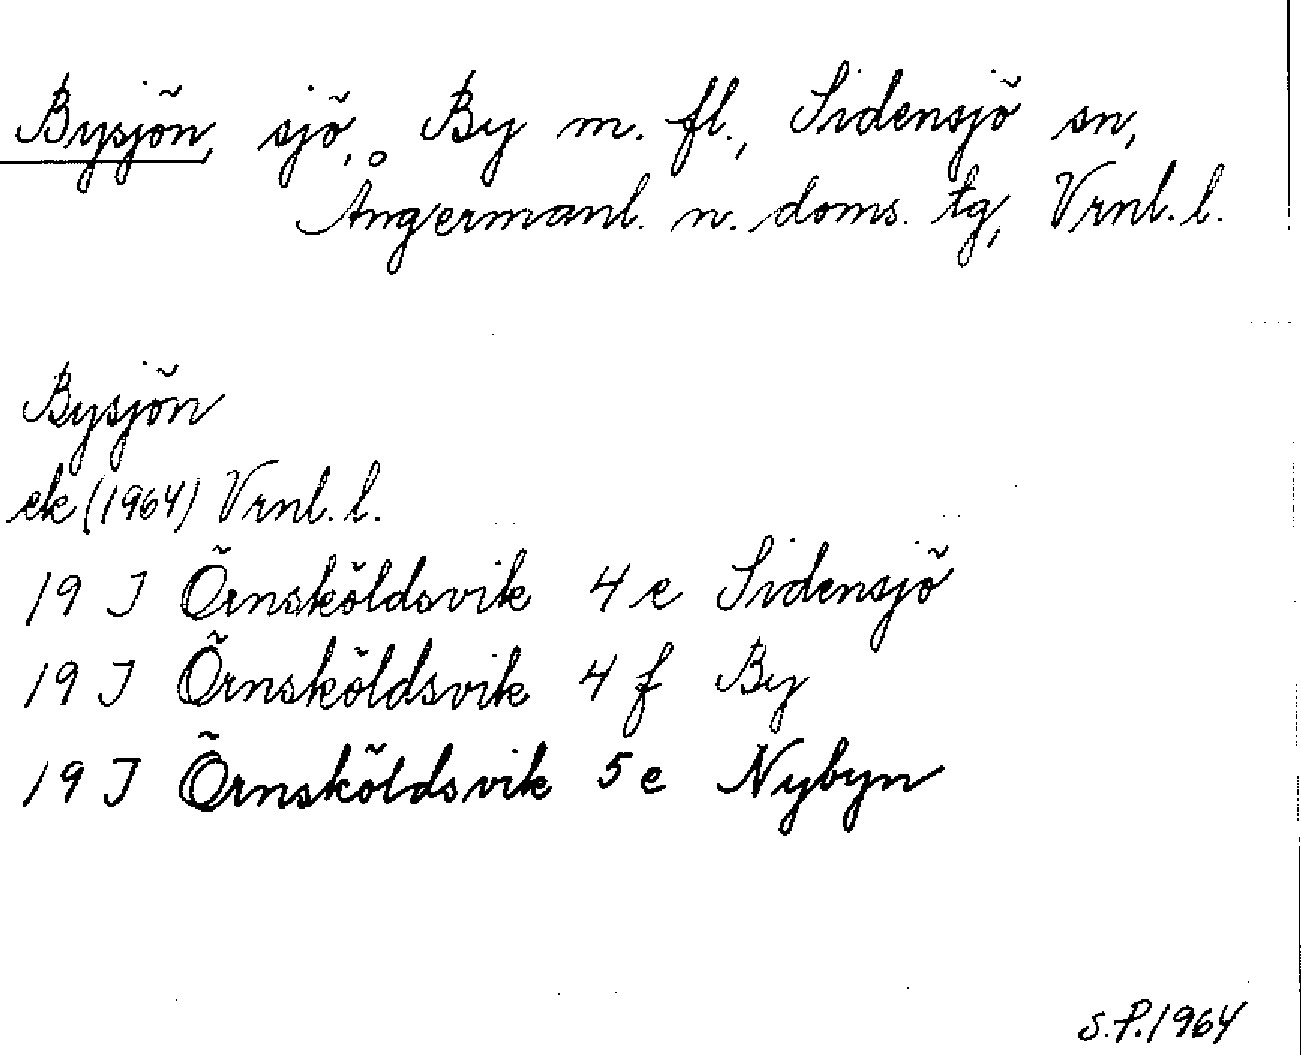 Bysjön, sjö, By m. fl., Sidensjö sn,
Ångermanl. n. doms. tg, Vrnl. l.
Bysjön
ek (1964) Vrnl. l.
19 J Örnsköldsvik 4 e Sidensjö
19 J Örnsköldsvik 4 f By
19 J Örnsköldsvik 5 e Nybyn
S.P. 1964